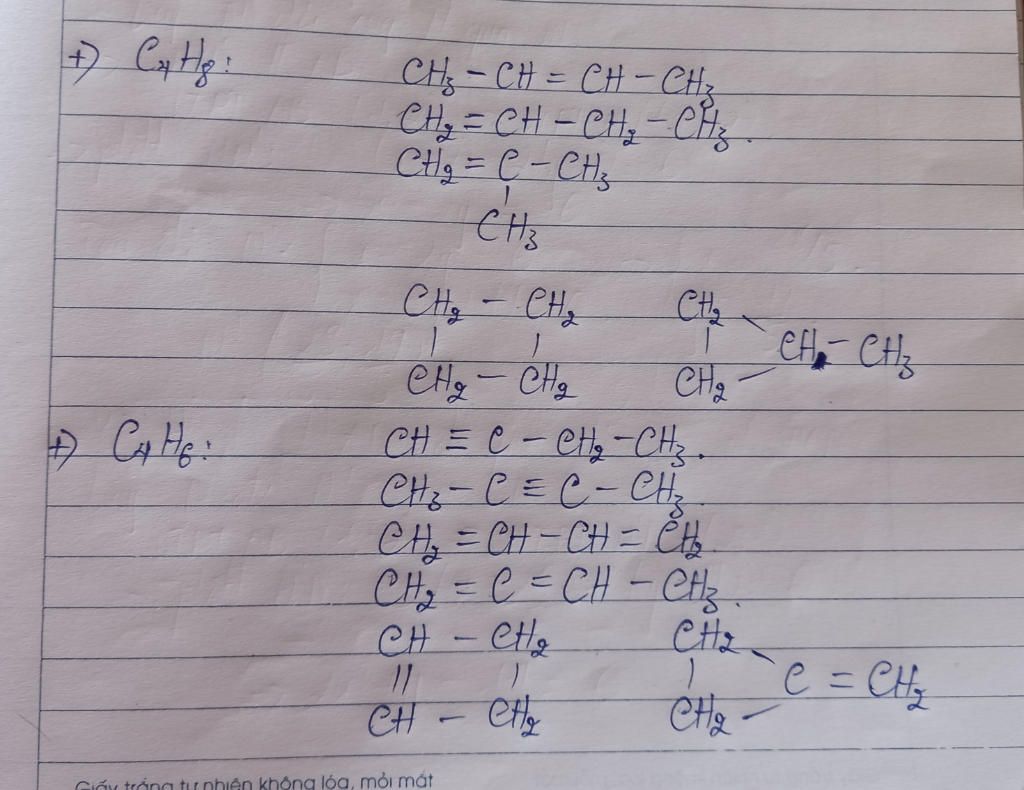 +) C₄H₈:
CH₃ – CH = CH – CH₃
CH₂ = CH – CH₂ – CH₃.
CH₂ = C – CH₃
|
CH₃
CH₂ – CH₂ CH₂ \
| | | CH – CH₃
CH₂ – CH₂ CH₂ /
+) C₄H₆:
CH ≡ C – CH₂ – CH₃.
CH₃ – C ≡ C – CH₃
CH₂ = CH – CH = CH₂
CH₂ = C = CH – CH₃.
CH – CH₂ CH₂ \
|| | | C = CH₂
CH – CH₂ CH₂ /
Giấy trắng tự nhiên không lóa, mỏi mắt